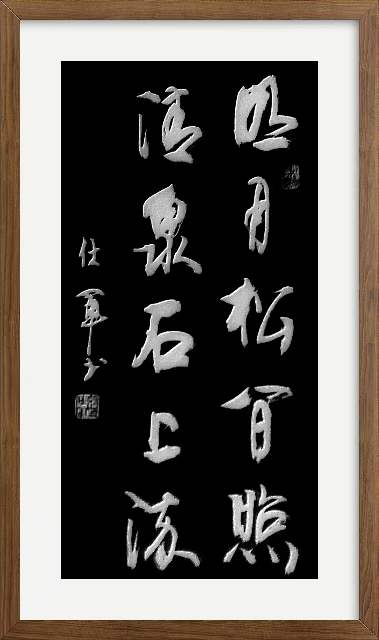 明月松間照
清泉石上流
仕軍书